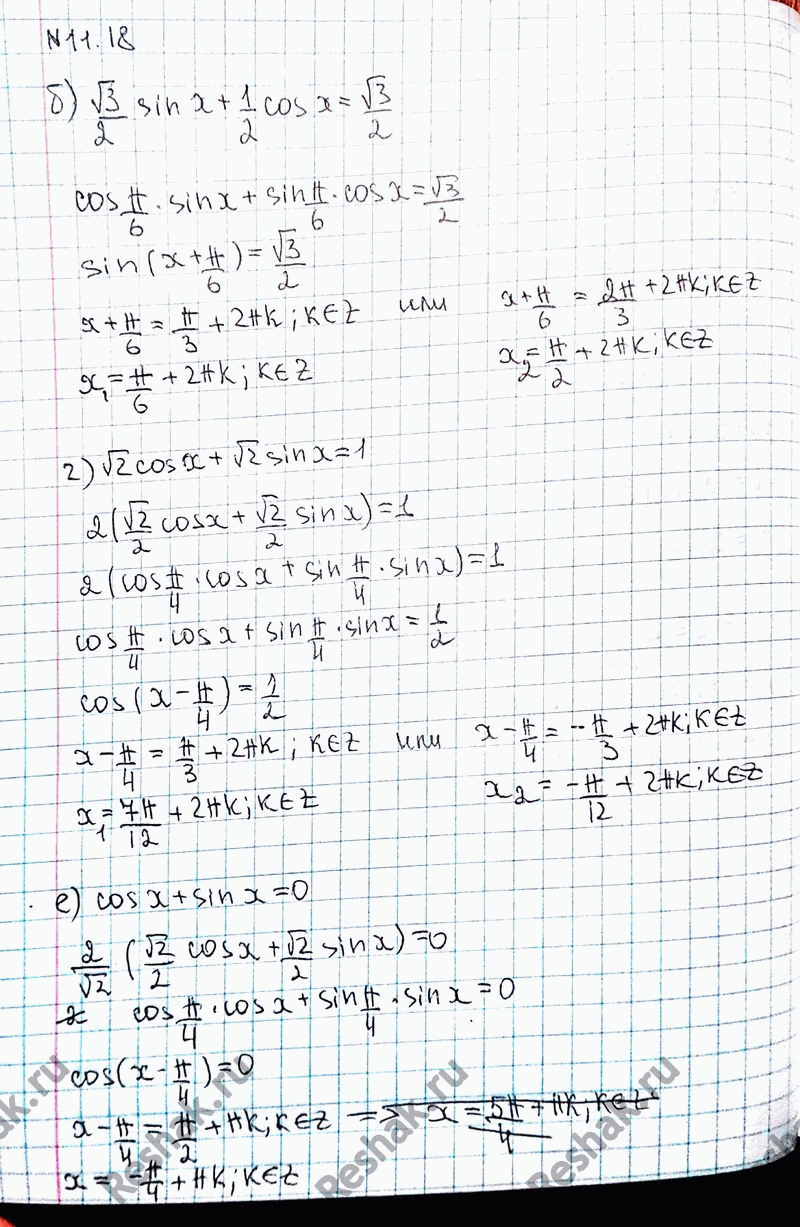 N11.18
б) √3/2 sin x + 1/2 cos x = √3/2
cos π/6 · sin x + sin π/6 · cos x = √3/2
sin(x + π/6) = √3/2
x + π/6 = π/3 + 2πk; k∈Z или x + π/6 = 2π/3 + 2πk; k∈Z
x₁ = π/6 + 2πk; k∈Z x₂ = π/2 + 2πk; k∈Z
г) √2 cos x + √2 sin x = 1
2(√2/2 cos x + √2/2 sin x) = 1
2(cos π/4 · cos x + sin π/4 · sin x) = 1
cos π/4 · cos x + sin π/4 · sin x = 1/2
cos(x − π/4) = 1/2
x − π/4 = π/3 + 2πk; k∈Z или x − π/4 = −π/3 + 2πk; k∈Z
x₁ = 7π/12 + 2πk; k∈Z x₂ = −π/12 + 2πk; k∈Z
е) cos x + sin x = 0
2/√2 (√2/2 cos x + √2/2 sin x) = 0
cos π/4 · cos x + sin π/4 · sin x = 0
cos(x − π/4) = 0
x − π/4 = π/2 + πk; k∈Z => x = 5π/4 + πk; k∈Z
x = −π/4 + πk; k∈Z
Reshak.ru
Reshak.ru
Reshak.ru